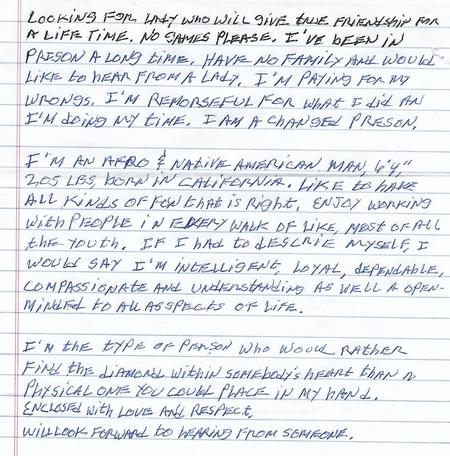 LOOKING FOR LADY WHO WILL GIVE TRUE FRIENDSHIP FOR
A LIFE TIME. NO GAMES PLEASE. I'VE BEEN IN
PRISON A LONG TIME. HAVE NO FAMILY AND WOULD
LIKE TO HEAR FROM A LADY. I'M PAYING FOR MY
WRONGS. I'M REMORSEFUL FOR WHAT I DID AN
I'M DOING MY TIME. I AM A CHANGED PRESON.
I'M AN AFRO & NATIVE AMERICAN MAN, 6'4",
205 LBS, BORN IN CALIFORNIA. LIKE TO HAVE
ALL KINDS OF FUN THAT IS RIGHT. ENJOY WORKING
WITH PEOPLE IN EVERY WALK OF LIKE, MOST OF ALL
THE YOUTH. IF I HAD TO DESCRIE MYSELF, I
WOULD SAY I'M INTELLIGENT, LOYAL, DEPENDABLE,
COMPASSIONATE AND UNDERSTANDING AS WELL A OPEN-
MINDED TO ALL ASSPECTS OF LIFE.
I'M THE TYPE OF PERSON WHO WOULD RATHER
FIND THE DIAMOND WITHIN SOMEBODY'S HEART THAN A
PHYSICAL ONE YOU COULD PLACE IN MY HAND.
ENCLOSED WITH LOVE AND RESPECT,
WILL LOOK FORWARD TO HEARING FROM SOMEONE.